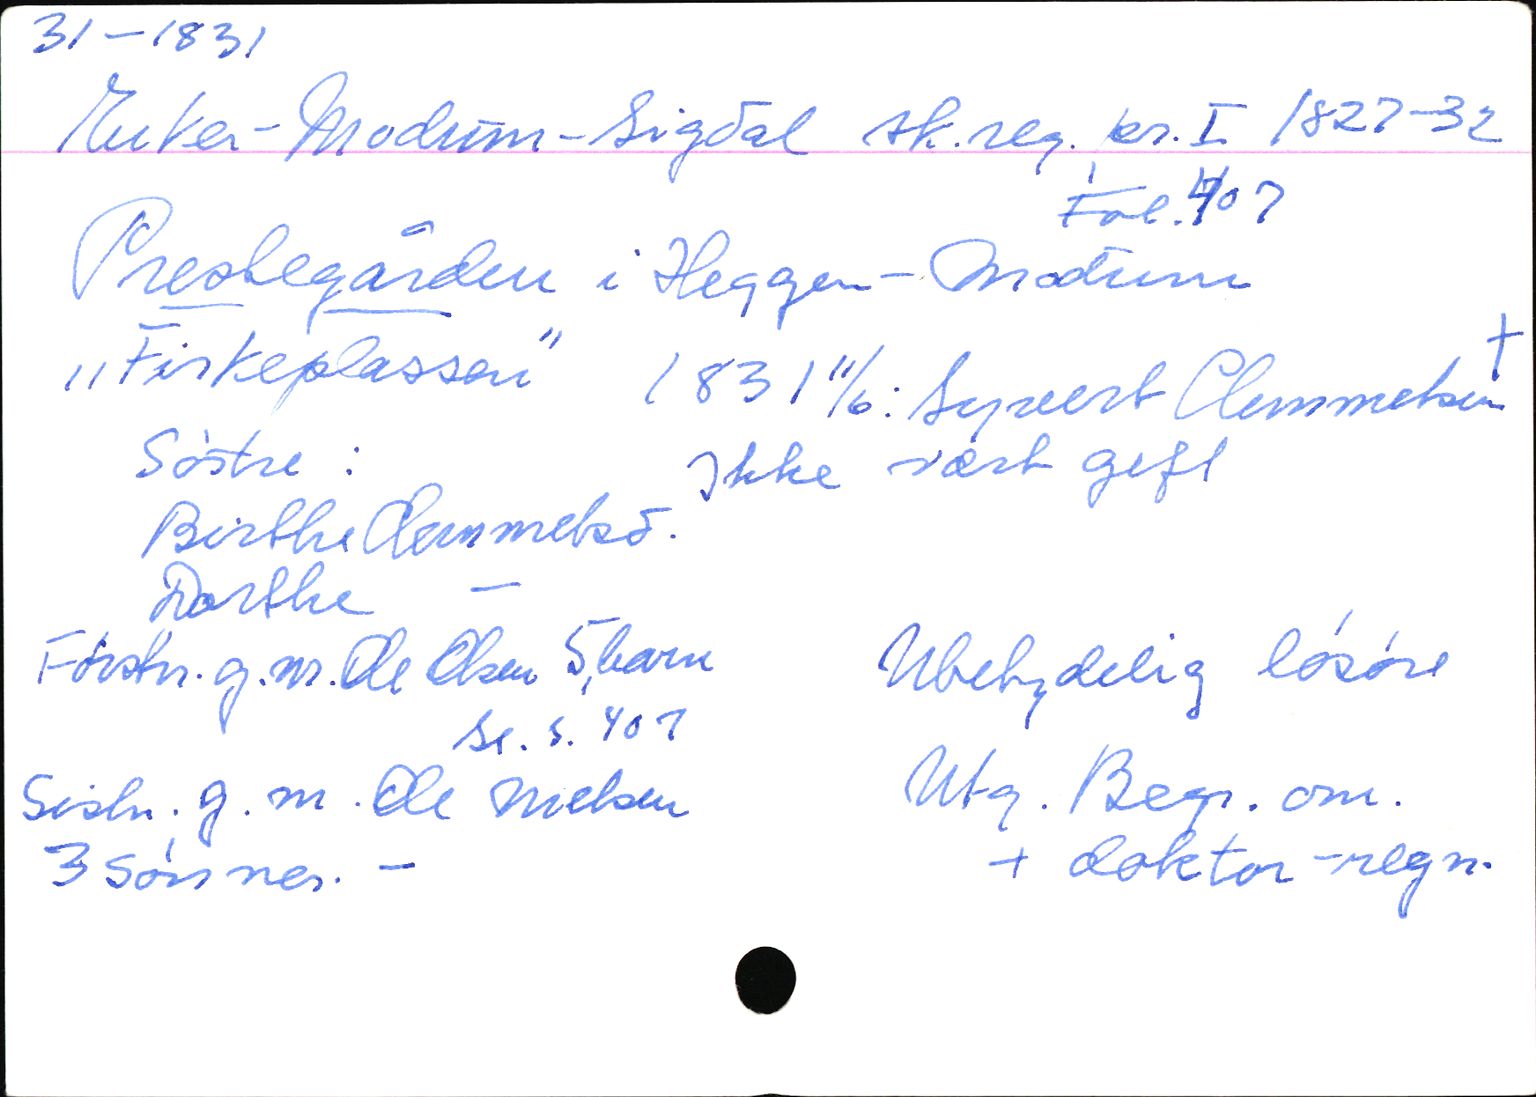 31-1831
Eiker-Modum-Sigdal sk.reg. pr. I 1827-32
Fol. 407
Prestegården i Heggen-Modum
„Fiskeplassen”
1831 11/6: Syvert Clemmetsen +
Ikke vært gift
Søstre :
Birthe Clemmetsd.
Dorthe —
Førstn. g.m. Ole Olsen 5 barn
se. s. 407
Sistn. g.m. Ole Nielsen
3 sønner. -
Ubetydelig løsøre
Utg. Begr. om.
+ doktor-regn.